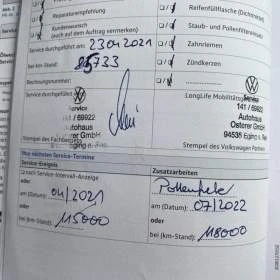 Reparaturempfehlung
Reifenfüllflasche (Dichtmittel
Kundenwunsch
(auch auf dem Auftrag vermerken)
Staub- und Pollenfilter
Service durchgeführt am: 23.04.2021
Zahnriemen
Ist km-Stand: 733
Zündkerzen
Rechnungsnummer:
Service durchgeführt
Service
141 / 69922
Autohaus
Osterer GmbH
LongLife Mobilitäts
Service
141 / 69922
Autohaus
Osterer GmbH
94535 Eging
Stempel des Fachbetriebs
Stempel des Volkswagen Partners
Ihre nächsten Service-Termine
Service-Ereignis
Zusatzarbeiten
nach Service-Intervall-Anzeige
Pollenfilter
am (Datum): 04/2021
am (Datum): 07/2022
oder
oder
bei (km-Stand): 115000
bei (km-Stand): 118000